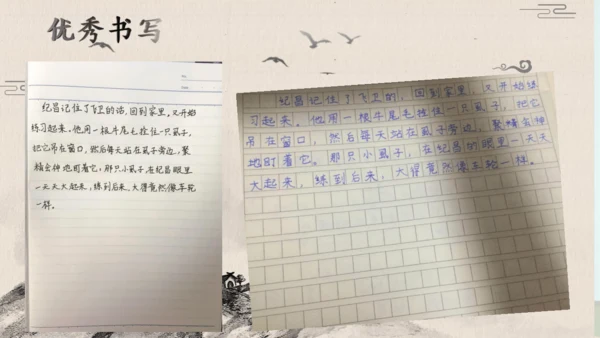 优秀书写
纪昌记住了飞卫的话,回到家里,又开始
练习起来。他用一根牛尾毛拴住一只虱子,
把它吊在窗口,然后每天站在虱子旁边,聚
精会神地盯着它。那只小虱子在纪昌眼里
一天天大起来,练到后来,大得竟然像车轮
一样。
纪昌记住了飞卫的,回到家里,又开始练
习起来。他用一根牛尾毛拴住一只虱子,把它
吊在窗口,然后每天站在虱子旁边,聚精会神
地盯着它。那只小虱子,在纪昌的眼里一天天
大起来,练到后来,大得竟然像车轮一样。